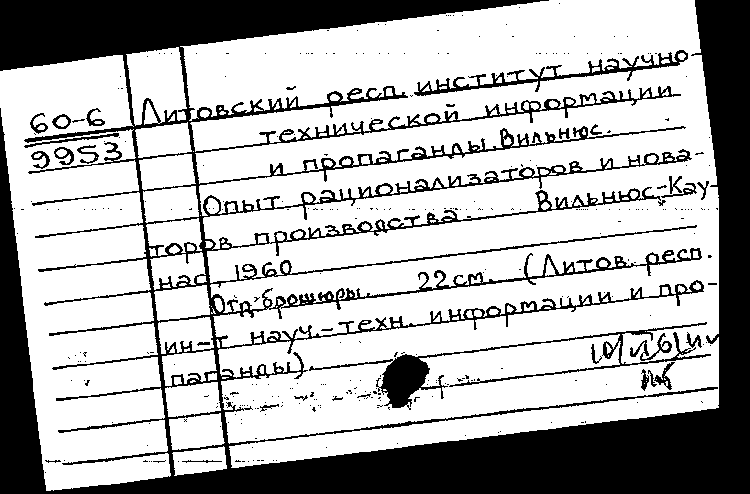 60-6
9953
Литовский респ. институт научно-
технической информации
и пропаганды. Вильнюс.
Опыт рационализаторов и нова-
торов производства. Вильнюс-Кау-
нас, 1960
Отд. брошюры. 22 см. (Литов. респ.
ин-т науч.-техн. информации и про-
паганды).